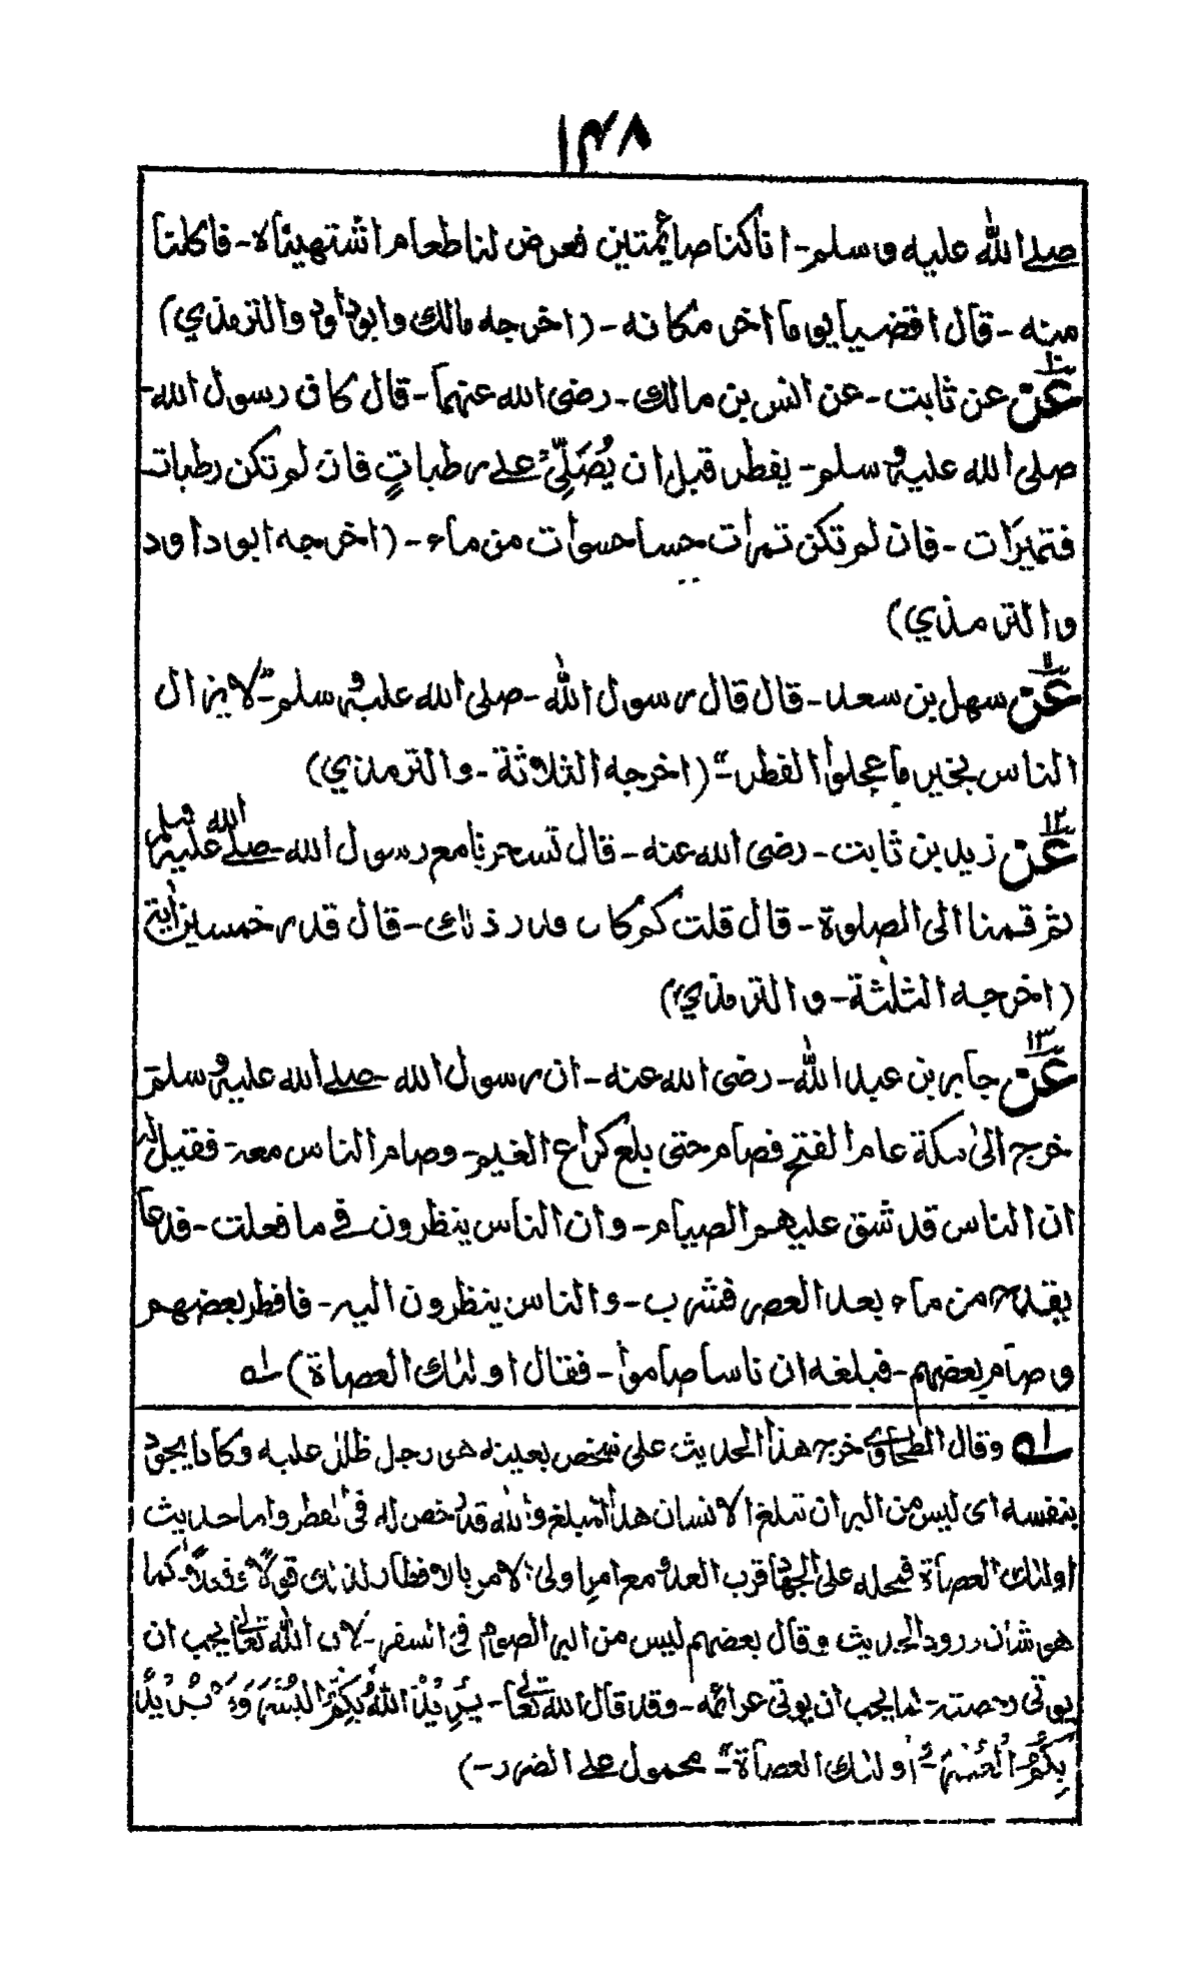 ١٣٨
صلے الله عليه وسلم۔ اناكنا صائمتين فعرض لنا طعام اشتهيناه۔ فاكلنا
منه۔ قال اقضيا يوما اخر مكانه۔ (اخرجه مالك وابوداود والترمذي)
١٠
عن عن ثابت۔ عن انس بن مالك۔ رضى الله عنهما۔ قال كان رسول الله۔
صلى الله عليه وسلم۔ يفطر قبل ان يُصَلِّىَ علے رطباتٍ فان لم تكن رطبات
فتميرات۔ فان لم تكن تمرات حسا حسوات من ماء۔ (اخرجه ابوداود
والترمذي)
١١
عن سهل بن سعد۔ قال قال رسول الله۔ صلى الله عليه وسلم۔ "لا يزال
الناس بخير ما عجلوا الفطر۔" (اخرجه الثلاثة۔ والترمذي)
١٢
عن زيد بن ثابت۔ رضى الله عنه۔ قال تسحرنا مع رسول الله۔ صلے الله عليه وسلم
ثم قمنا الى الصلوة۔ قال قلت كم كان قدر ذلك۔ قال قدر خمسين اية
(اخرجه الثلثة۔ والترمذي)
١٣
عن جابر بن عبد الله۔ رضى الله عنه۔ ان رسول الله صلے الله عليه وسلم
خرج الى مكة عام الفتح فصام حتى بلغ كراع الغيم۔ وصام الناس معه۔ فقيل له
ان الناس قد شق عليهم الصيام۔ وان الناس ينظرون في ما فعلت۔ فدعا
بقدح من ماء بعد العصر فشرب۔ والناس ينظرون اليه۔ فافطر بعضهم
وصام بعضهم۔ فبلغه ان ناسا صاموا۔ فقال اولئك العصاة) لـه
لـه وقال الطحاوي خرج هذا الحديث على شخص بعينه هو رجل ظلل عليه وكاد يجود
بنفسه اى ليس من البر ان تبلغ الانسان هذا المبلغ والله قد رخص له في الفطر واما حديث
اولئك العصاة فمحله على الجهاد قرب العدو مع امر اولى الامر بالافطار لذلك قولا وفعلا كما
هو شان ورود الحديث وقال بعضهم ليس من البر الصوم في السفر۔ لان الله تعالى يحب ان
يوتى رخصته۔ كما يحب ان يوتى عزائمه۔ وقد قال الله تعالى۔ يُرِيْدُ اللهُ بِكُمُ الْيُسْرَ وَلَا يُرِيْدُ
بِكُمُ الْعُسْرَ۔ و "اولئك العصاة"۔ محمول علے الضرر۔)